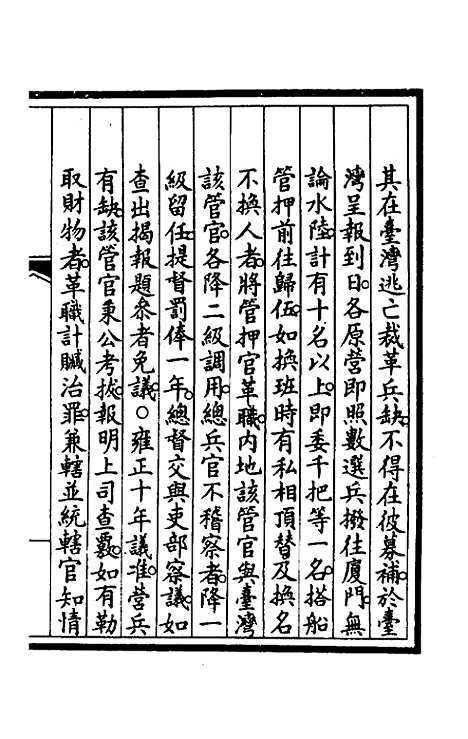 其在臺灣逃亡裁革兵缺。不得在彼募補。於臺
灣呈報到日。各原營即照數選兵撥往廈門。無
論水陸。計有十名以上。即委千把等一名。搭船
管押前往歸伍。如換班時有私相頂替及換名
不換人者。將管押官革職。內地該管官與臺灣
該管官。各降二級調用。總兵官不稽察者。降一
級留任。提督罰俸一年。總督交與吏部察議。如
查出揭報題參者免議。○雍正十年議准。營兵
有缺。該管官秉公考拔。報明上司查覈。如有勒
取財物者。革職計贓治罪。兼轄並統轄官知情